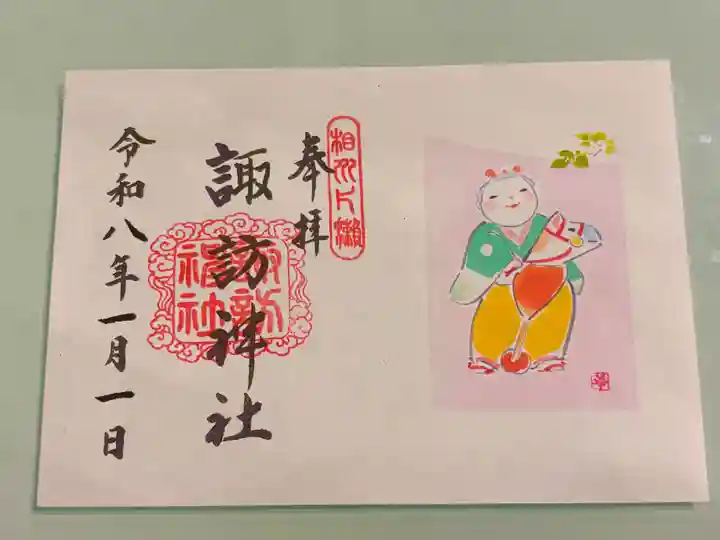 相州片瀬
奉拝
諏訪神社
諏訪神社
令和八年一月一日